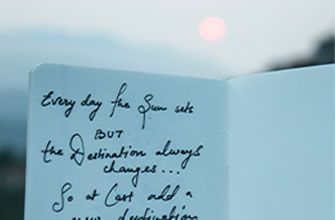 Every day the Sun sets
BUT
the Destination always
changes...
So at Last add a
new destination